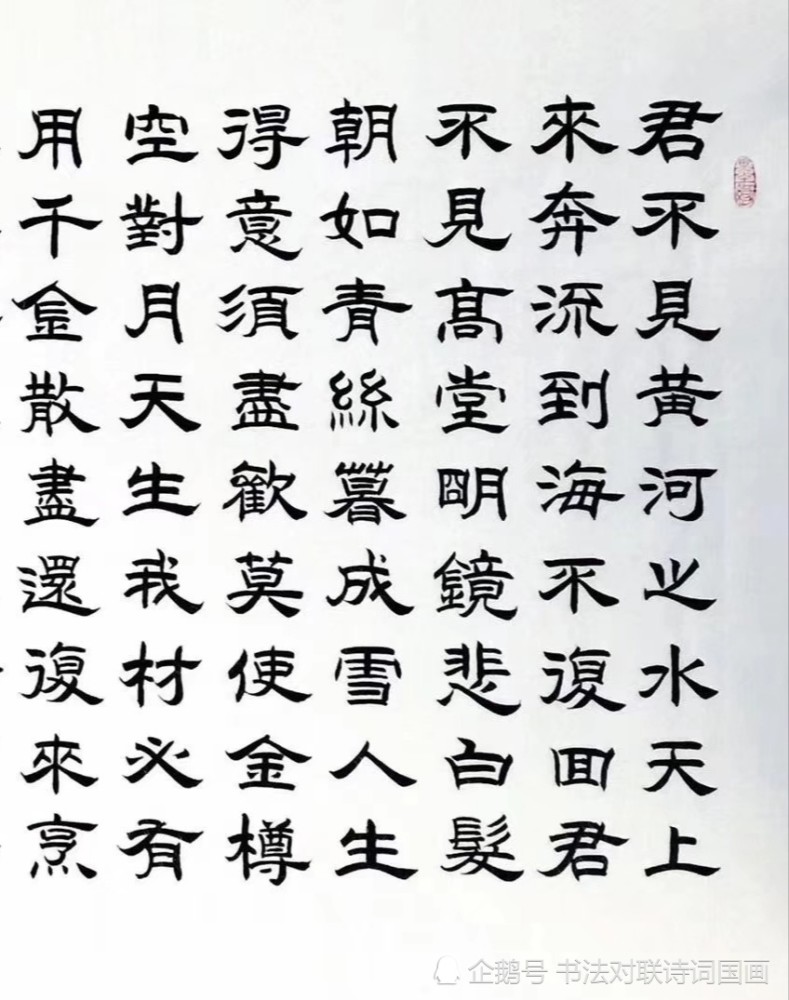 君不見黃河之水天上
來奔流到海不復回君
不見高堂明鏡悲白髮
朝如青絲暮成雪人生
得意須盡歡莫使金樽
空對月天生我材必有
用千金散盡還復來烹
企鹅号 书法对联诗词国画